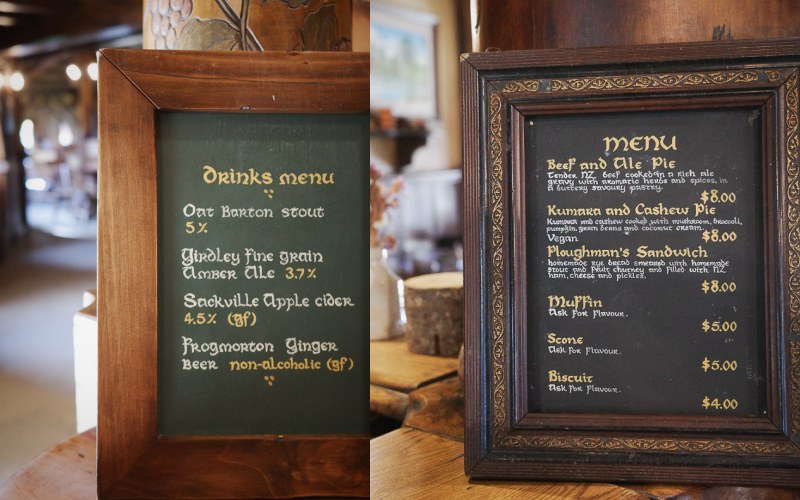 Drinks menu
Oat Barton stout
5%
Girdley Fine grain
Amber Ale 3.7%
Sackville Apple cider
4.5% (gf)
Frogmorton Ginger
Beer non-alcoholic (gf)
menu
Beef and Ale Pie
Tender NZ beef cooked in a rich ale
gravy with aromatic herbs and spices, in
a buttery savoury pastry.
$8.00
Kumara and Cashew Pie
Kumara and cashew cooked with mushroom, broccoli,
pumpkin, green beans and coconut cream.
Vegan
$8.00
Ploughman's Sandwich
homemade rye bread smeared with homemade
stout and fruit chutney and filled with NZ
ham, cheese and pickles.
$8.00
Muffin
Ask for flavour.
$5.00
Scone
Ask for flavour.
$5.00
Biscuit
Ask for flavour.
$4.00